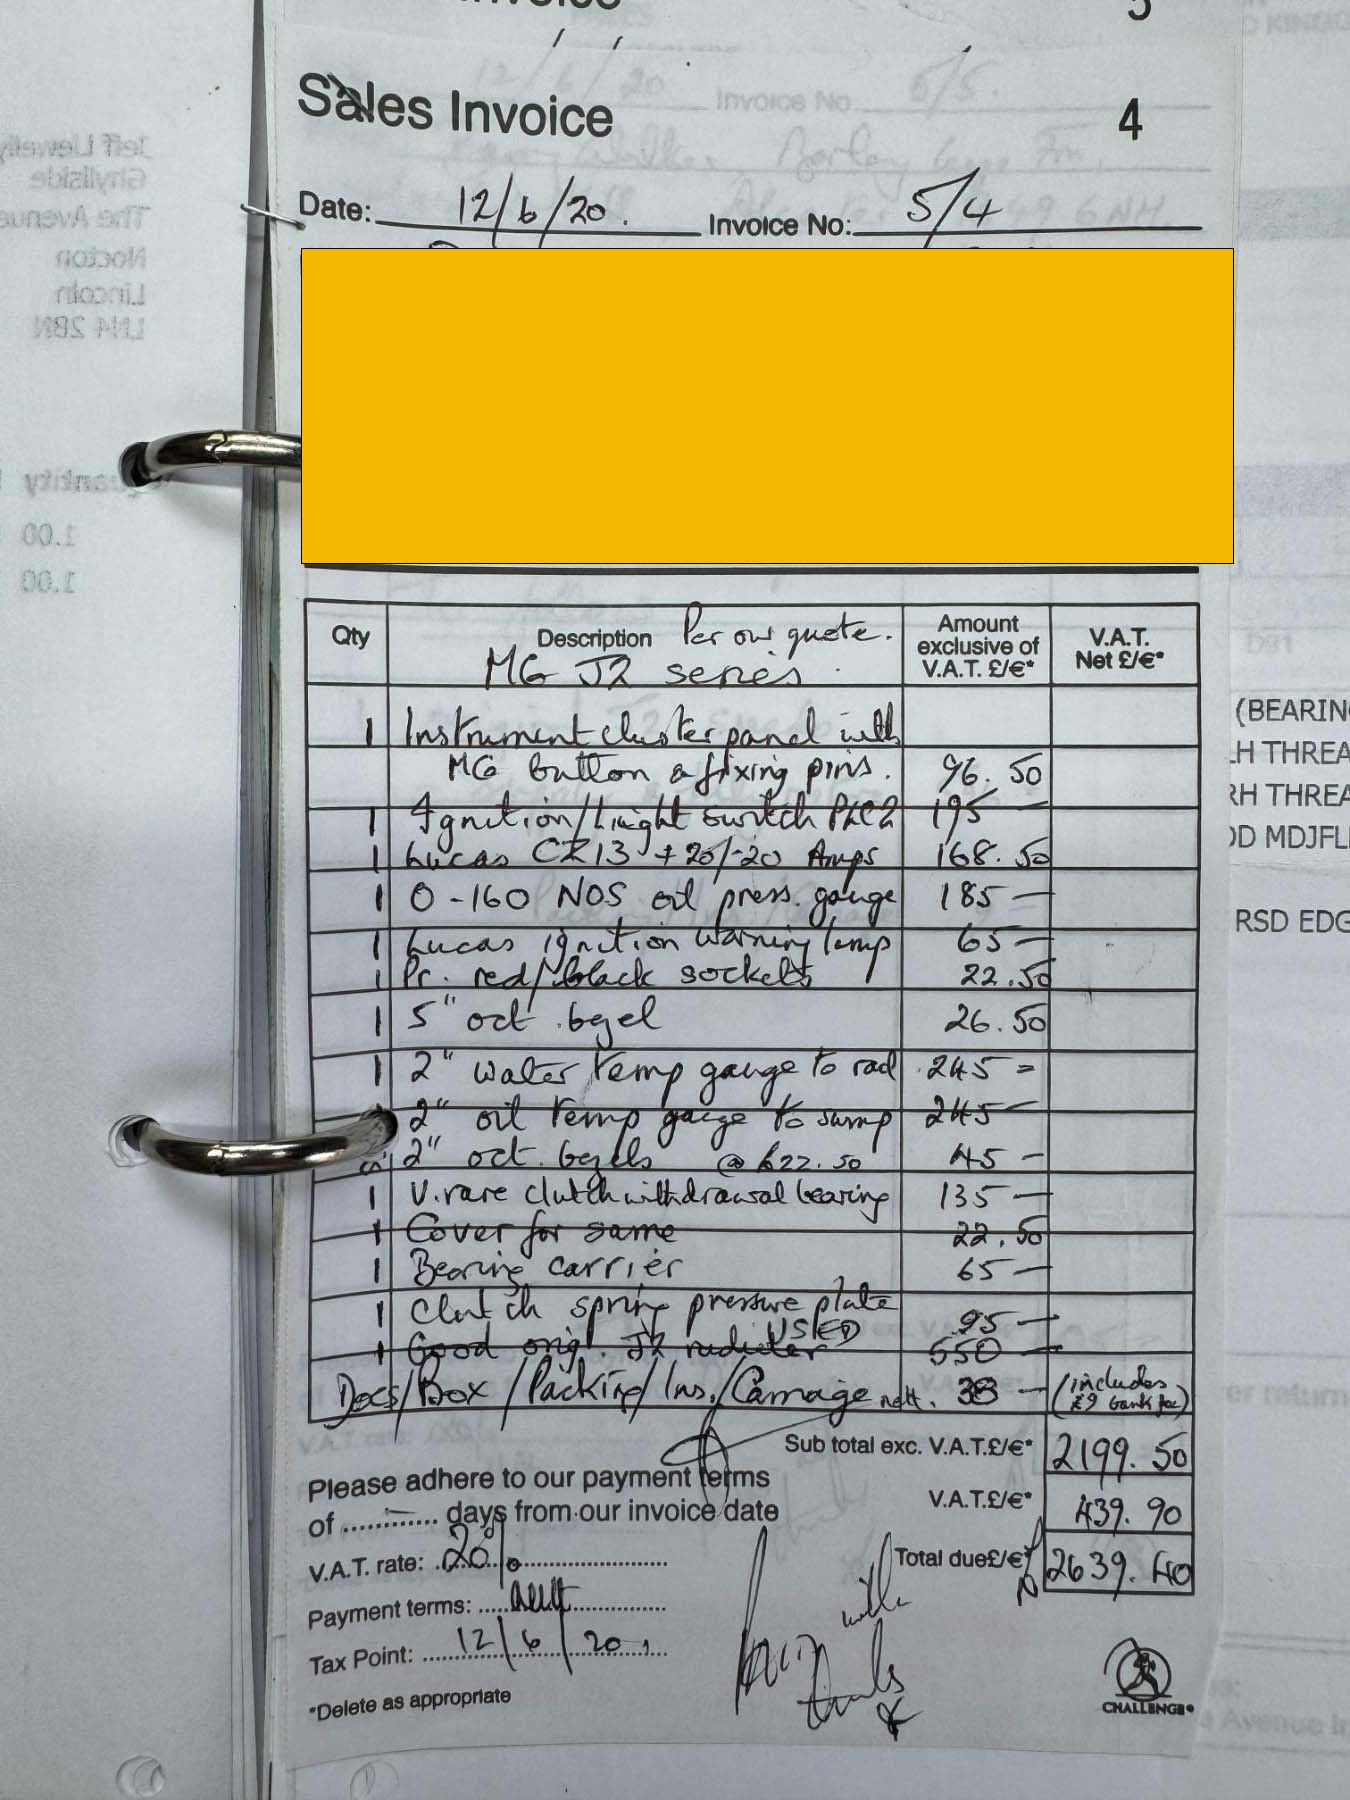 Sales Invoice 4
Date: 12/6/20. Invoice No: 5/4
Qty Description Per our quote. Amount exclusive of V.A.T. £/€* V.A.T. Net £/€*
MG J2 series
1 Instrument cluster panel with
MG button & fixing pins. 96.50
1 Ignition/Light switch PLC2 195 —
1 Lucas CZ13 +20/-20 Amps 168.50
1 0-160 NOS oil press. gauge 185 —
1 Lucas ignition warning lamp 65 —
1 Pr. red/black sockets 22.50
1 5" oct. bezel 26.50
1 2" water temp gauge to rad 245 =
2" oil temp gauge to sump 245 —
2" oct. bezels @ £22.50 45 —
1 V. rare clutch withdrawal bearing 135 —
1 Cover for same 22.50
1 Bearing carrier 65 —
1 Clutch spring pressure plate 95 —
USED
1 Good orig. J2 radiator 550 —
Docs/Box/Packing/Ins./Carriage nett. 38 — (includes £9 bank fee)
Sub total exc. V.A.T.£/€* 2199.50
Please adhere to our payment terms
of ............ days from our invoice date
V.A.T.£/€* 439.90
V.A.T. rate: 20%
Total due£/€* 2639.40
Payment terms:
with
Tax Point: 12/6/20
thanks
*Delete as appropriate
CHALLENGE®
Jeff Llewelly
Ghyllside
The Avenue
Nocton
Lincoln
LN4 2BN
Quantity
1.00
1.00
(BEARIN
LH THREA
RH THREA
OD MDJFL
RSD EDG